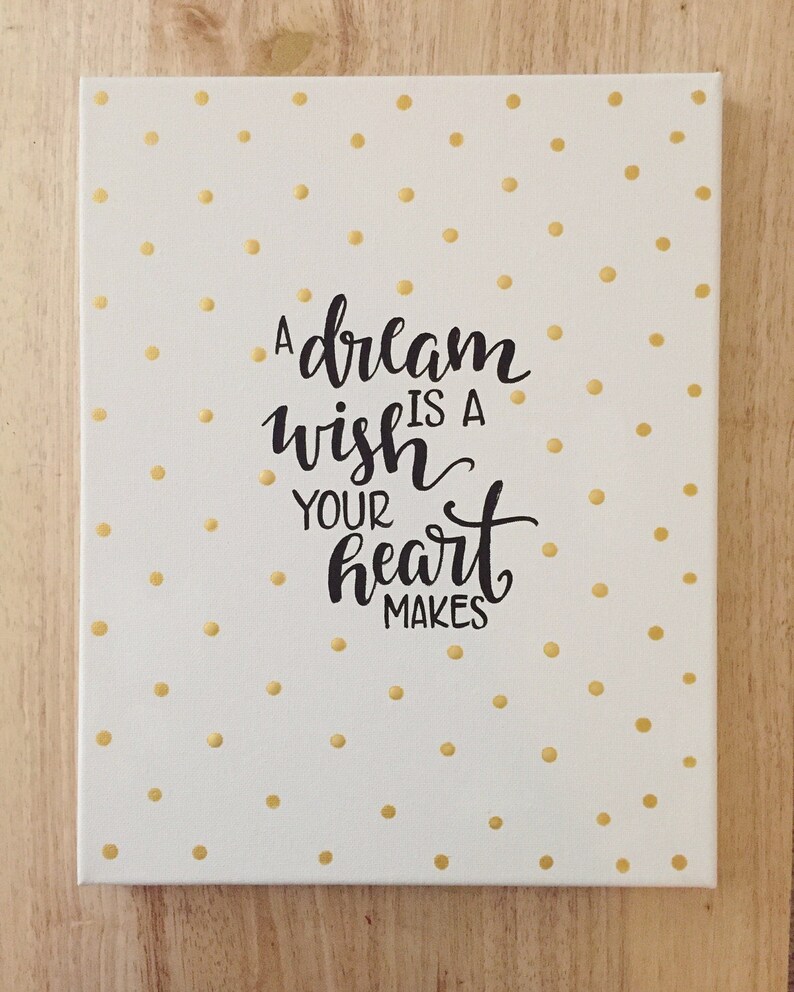 A dream
IS A
wish
YOUR
heart
MAKES